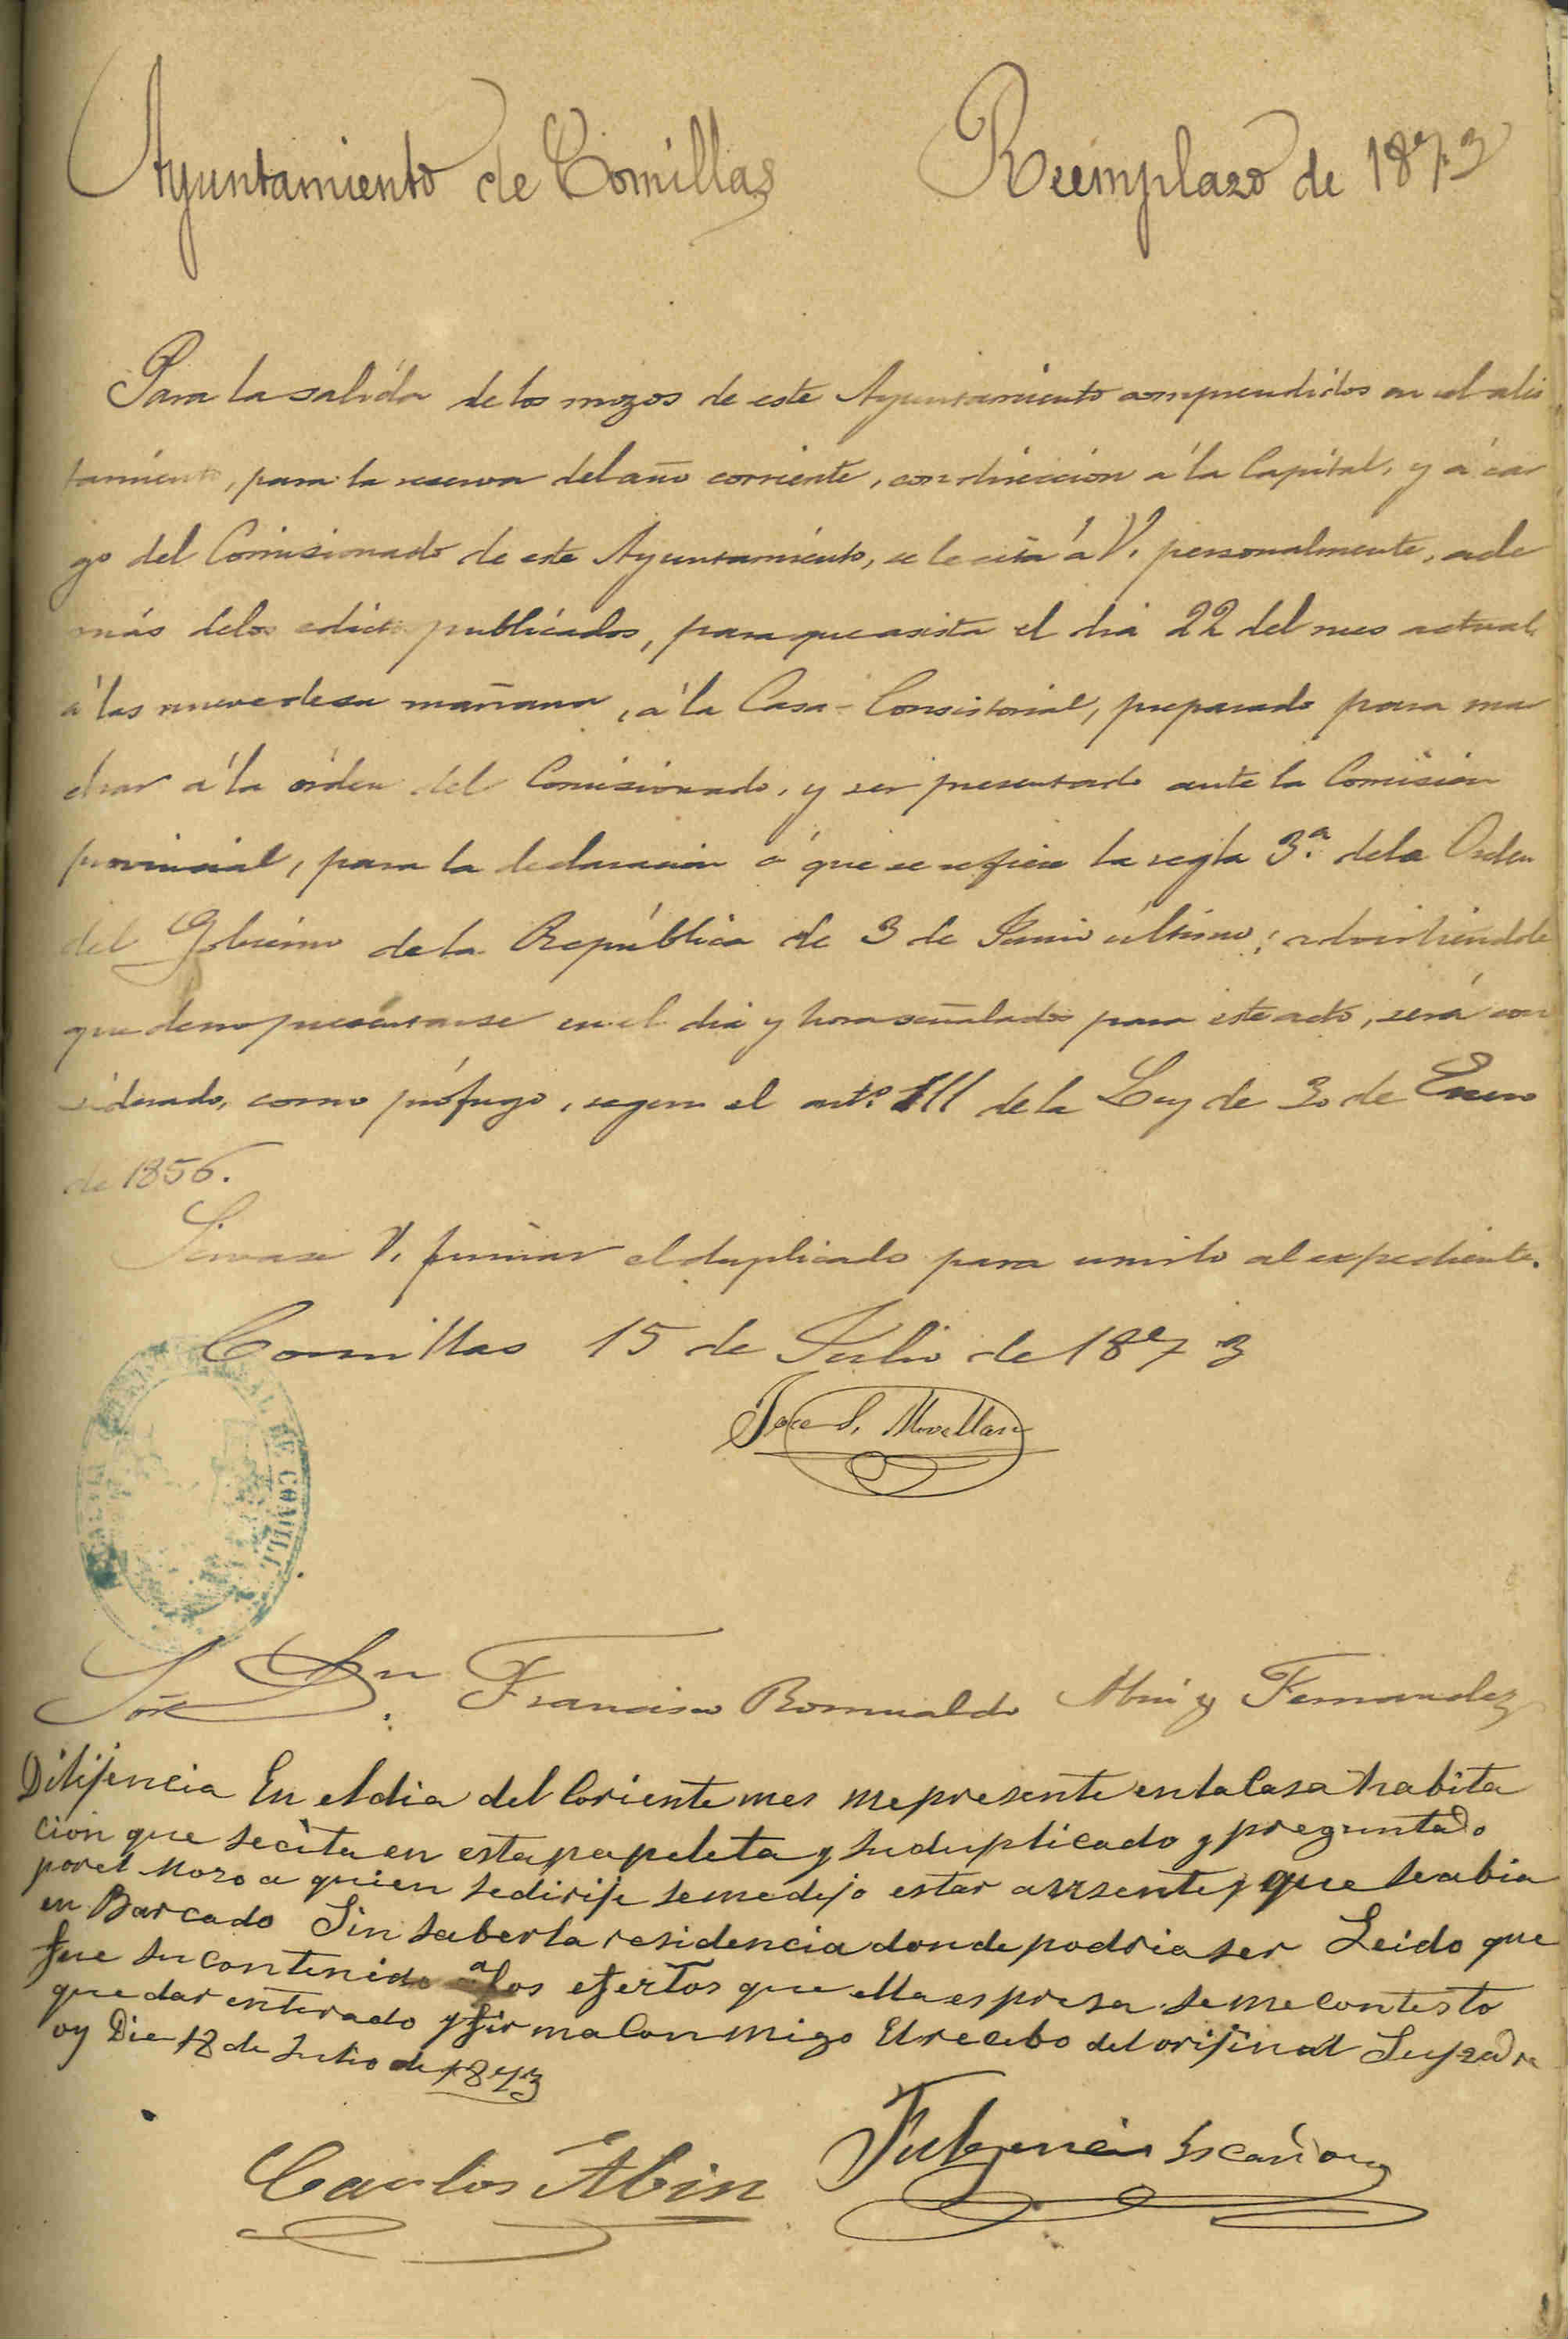 Ayuntamiento de Comillas Reemplazo de 1873
Para la salida de los mozos de este Ayuntamiento comprendidos en el alis
tamiento, para la reserva del año corriente, con direccion á la Capital, y á car
go del Comisionado de este Ayuntamiento, se le cita á V. personalmente, ade
más de los edictos publicados, para que asista el dia 22 del mes actual,
á las nueve de su mañana, á la Casa-Consistorial, preparado para mar
char á la órden del Comisionado, y ser presentado ante la Comision
provincial, para la declaracion á que se refiere la regla 3.ª de la Orden
del Gobierno de la República de 3 de Junio último; advirtiendole
que de no presentarse en el dia y hora señalados para este acto, será con
siderado, como prófugo, segun el art.º 111 de la Ley de 30 de Enero
de 1856.
Sirvase V. firmar el duplicado para unirlo al expediente.
Comillas 15 de Julio de 1873
Jose S. Movellan
DE COMILL
Sór Dn. Francisco Romualdo Abin y Fernandez
Dilijencia En el dia del Coriente mes me presente en la Casa habita
cion que se cita en esta papeleta y su duplicado y preguntado
por el Mozo a quien se dirije se me dijo estar aussente y que se abia
en Barcado Sin saber la residencia donde podria ser Leido que
fue su contenido a los efertos que ella espresa se me contesto
quedar enterado y firma Con migo El recibo del orijinal Su padre
oy Die 18 de Julio de 1873
Carlos Abin Fulgencio Escandon